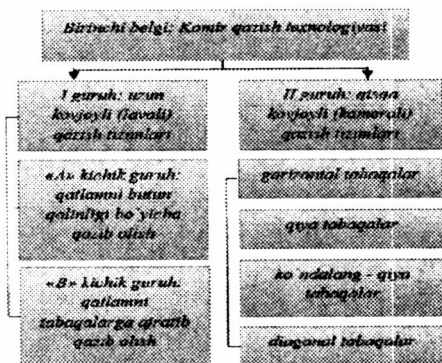 Birinchi belgi: Komir qazish texnologiyasi
I guruh: uzun
kovjoyli (lavali)
qazish tizimlari
«A» kichik guruh:
qatlamni butun
qalinligi bo'yicha
qazib olish
«B» kichik guruh:
qatlamni
tabaqalarga ajratib
qazib olish
II guruh: qisqa
kovjoyli (kamerali)
qazish tizimlari
gorizontal tabaqalar
qiya tabaqalar
ko'ndalang - qiya
tabaqalar
diagonal tabaqalar